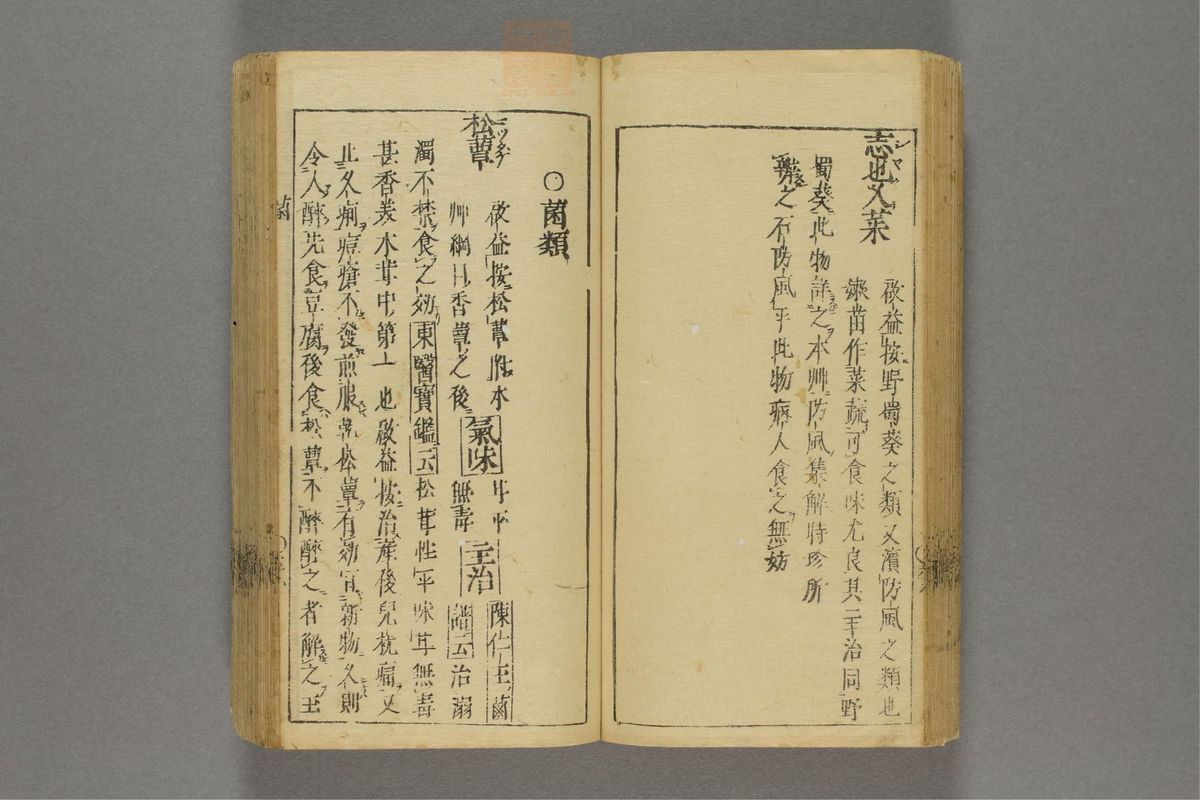 志也乂菜
シヤム
啟益按野蜀葵之類又濱防風之類也
嫩苗作菜蔬可食味尤良其主治同野
蜀葵此物詳之本艸防風集解時珍所
謂之石防風乎此物病人食之無妨
○菌類
松蕈
マツタケ
啟益按松蕈附本
艸綱目香蕈之後
氣味
甘平
無毒
主治
陳仁玉菌
譜云治溺
濁不禁食之効東醫寶鑑云松茸性平味甘無毒
甚香美木茸中第一也啟益按治産後兒枕痛又
止久痢痘瘡不發煎服乾松蕈有効宜新物久則
令人醉先食豆腐後食松蕈不醉醉之者解之王
菌